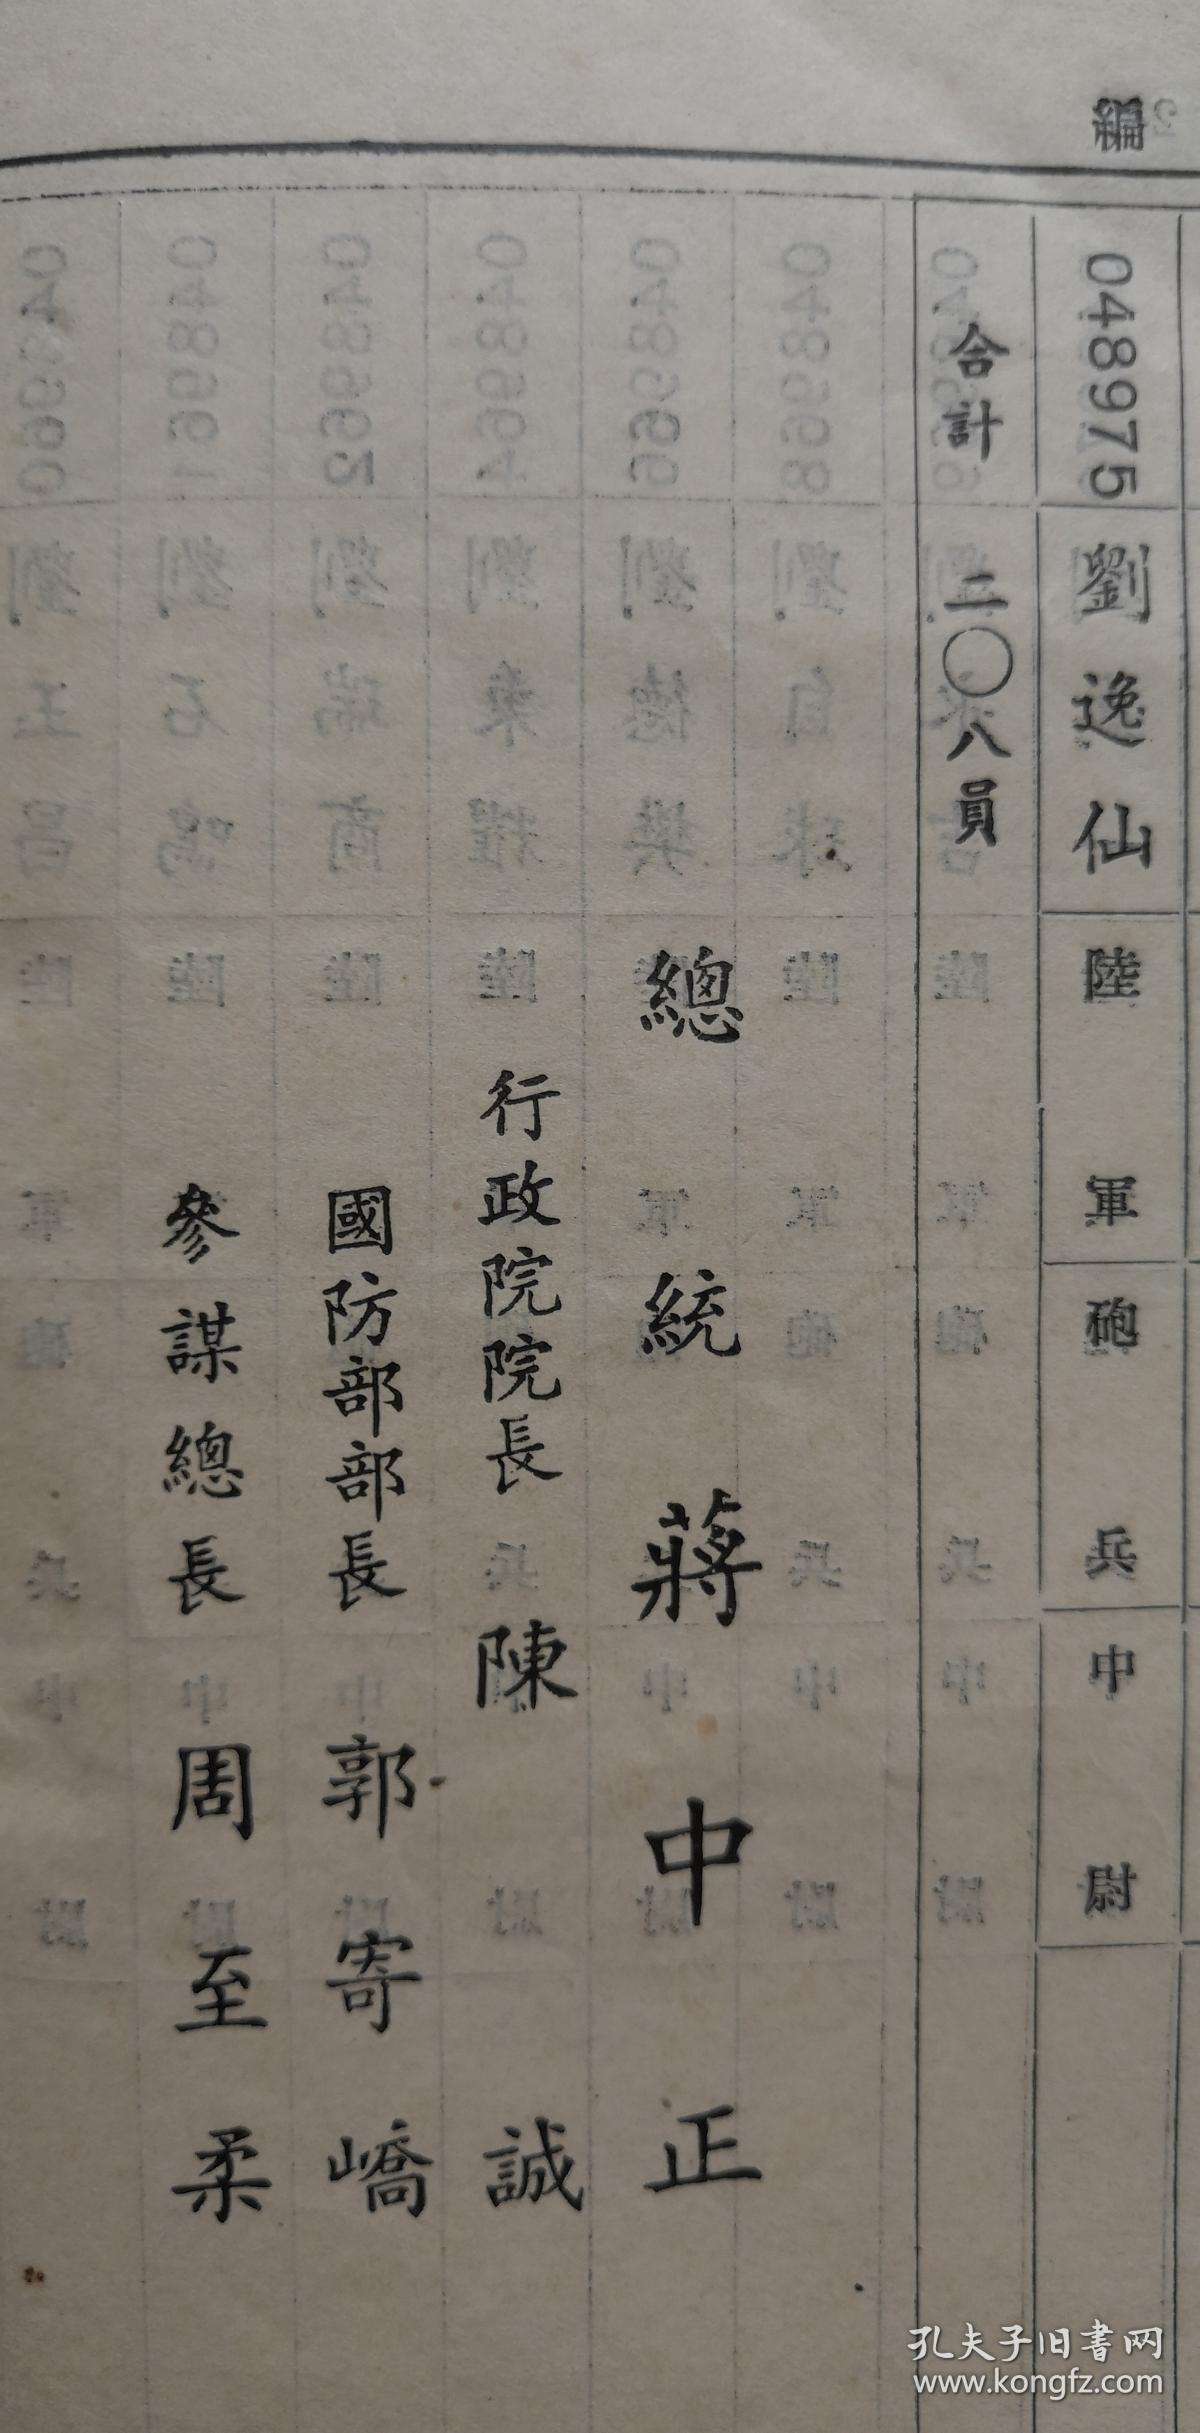 編
048975 劉逸仙 陸軍 砲兵 中尉
合計 二〇八員
總統 蔣中正
行政院院長 陳誠
國防部部長 郭寄嶠
參謀總長 周至柔
孔夫子旧書网
www.kongfz.com